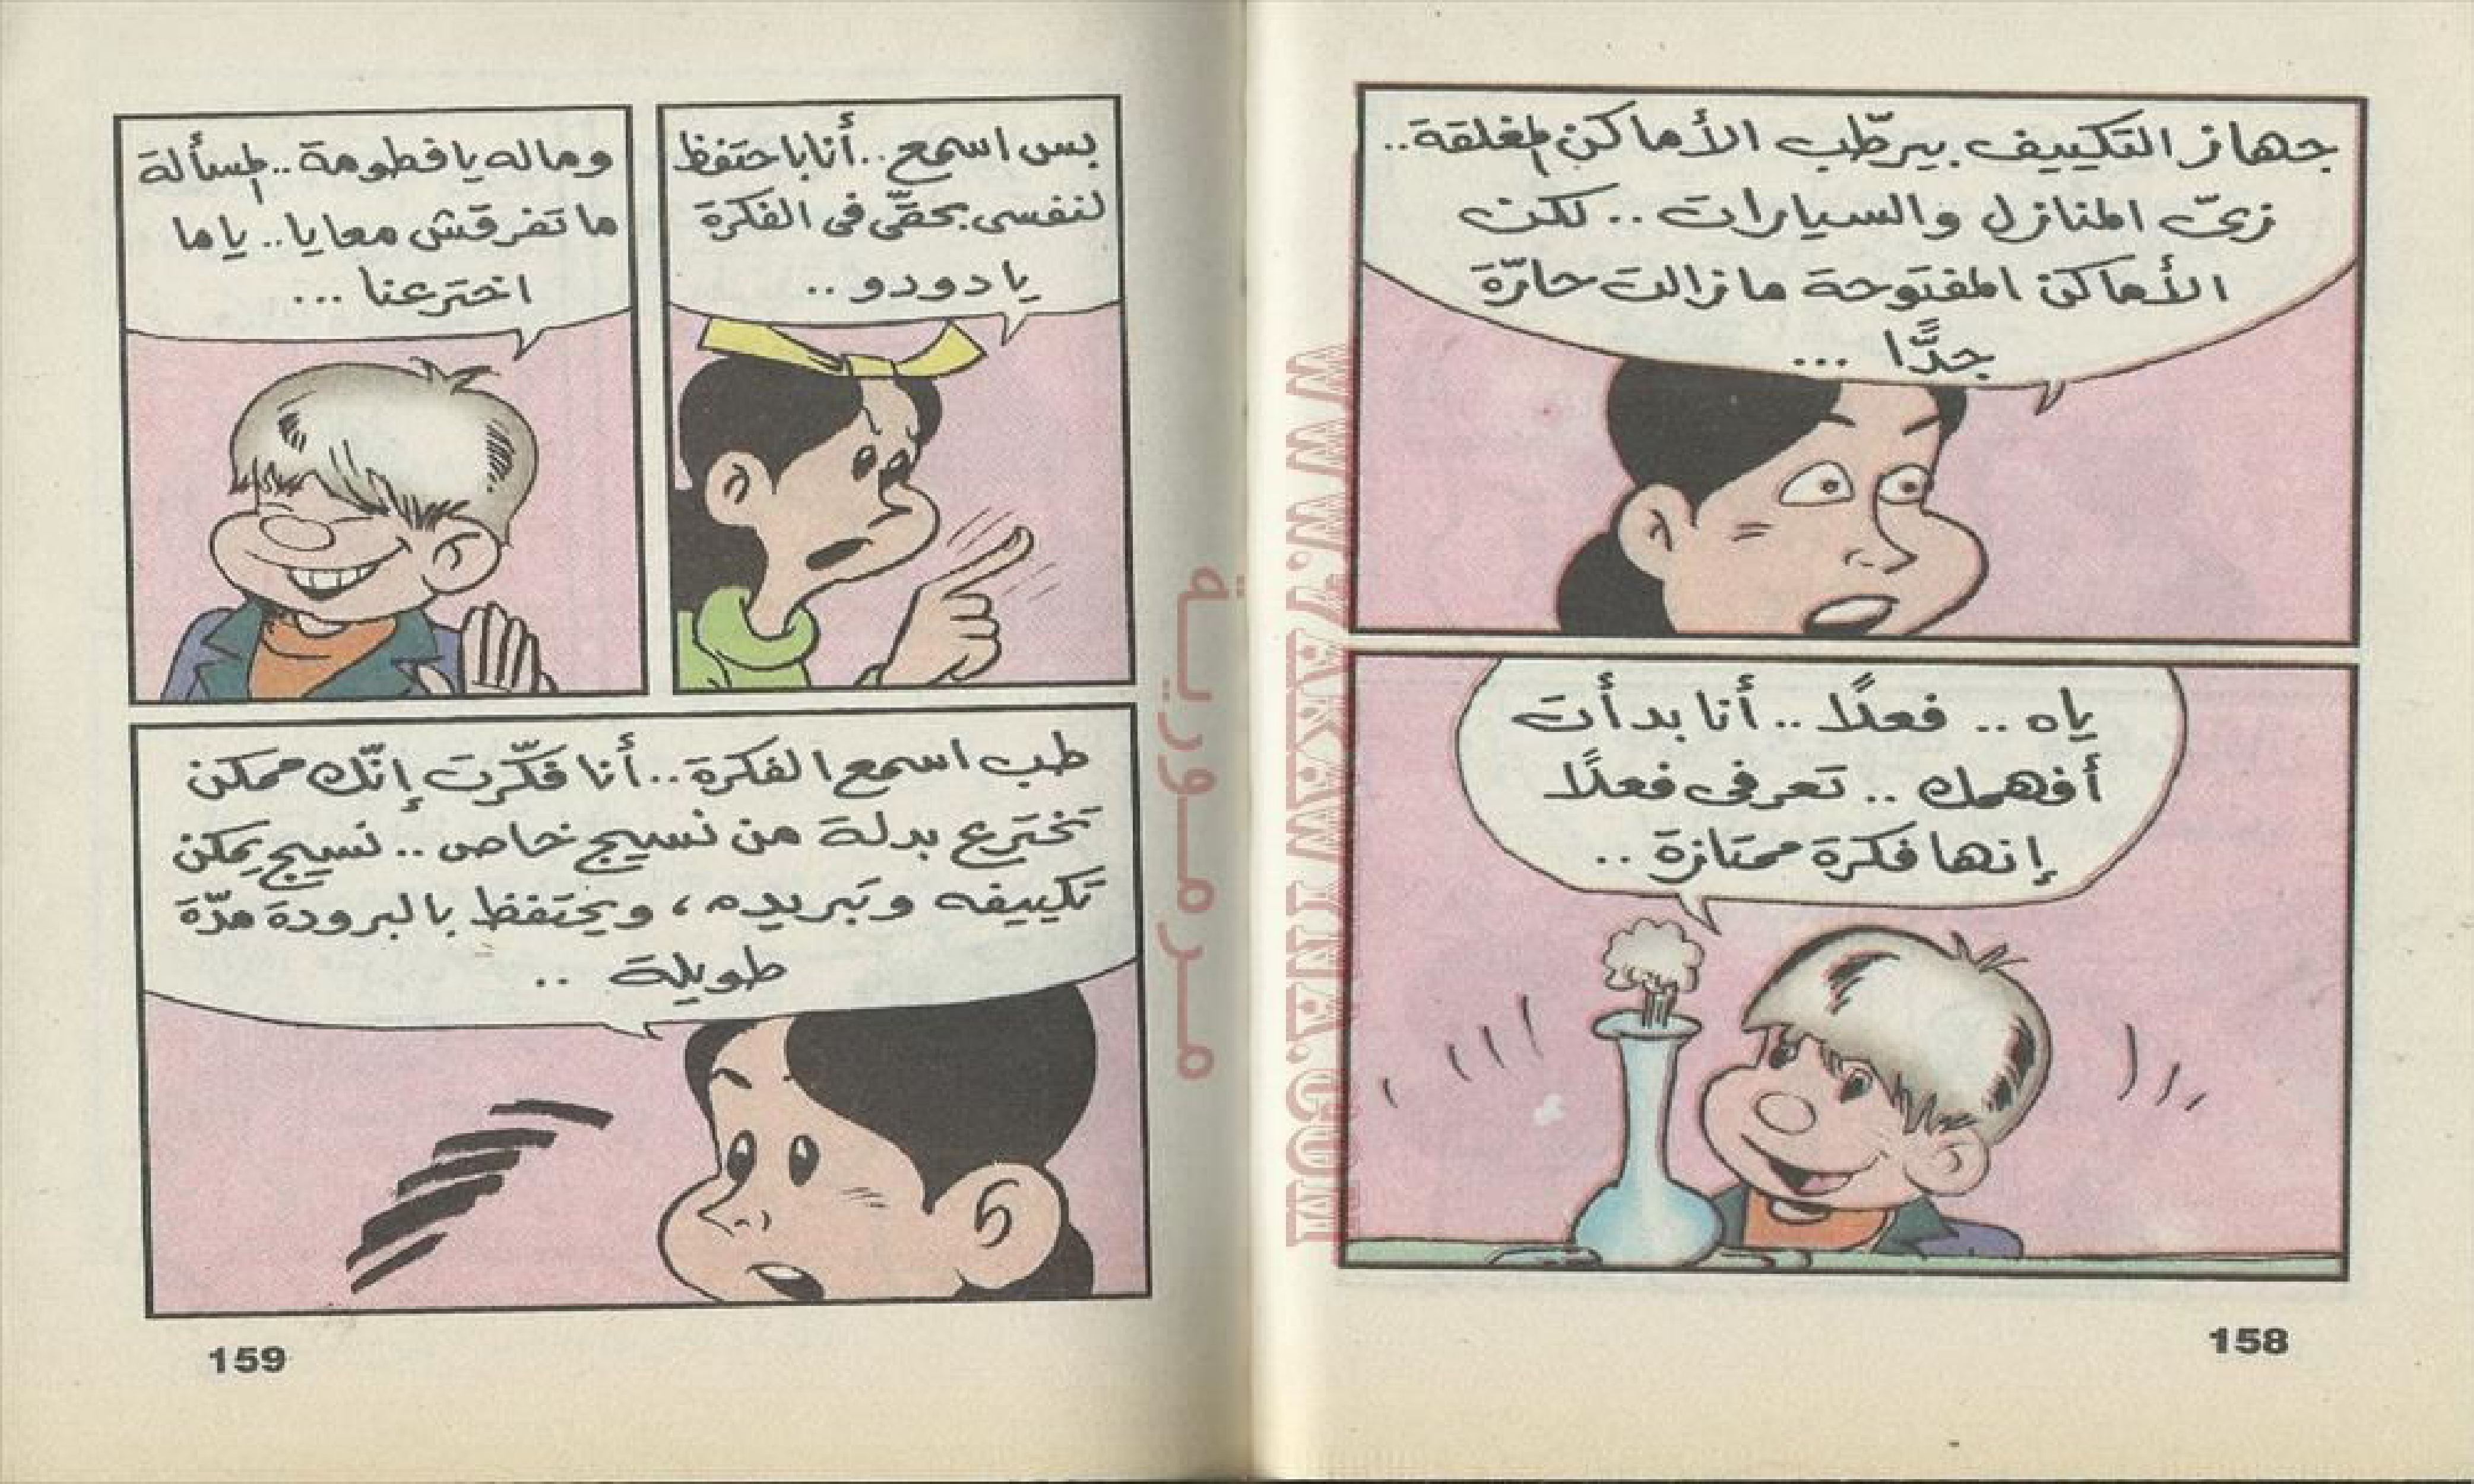 جهاز التكييف بيرطّب الأماكن المغلقة..
زىّ المنازل والسيارات .. لكن
الأماكن المفتوحة ما زالت حارّة
جدًّا ...
ياه .. فعلًا .. أنا بدأت
أفهمك .. تعرفى فعلًا
إنها فكرة ممتازة ..
158
بس اسمع .. أنا باحتفظ
لنفسى بحقّى فى الفكرة
يا دودو ..
وماله يا فطومة .. المسألة
ما تفرقش معايا .. ياما
اخترعنا ...
طب اسمع الفكرة .. أنا فكّرت إنّك ممكن
تخترع بدلة من نسيج خاص .. نسيج يمكن
تكييفه وتبريده ، ويحتفظ بالبرودة مدّة
طويلة ..
159
مرمورية